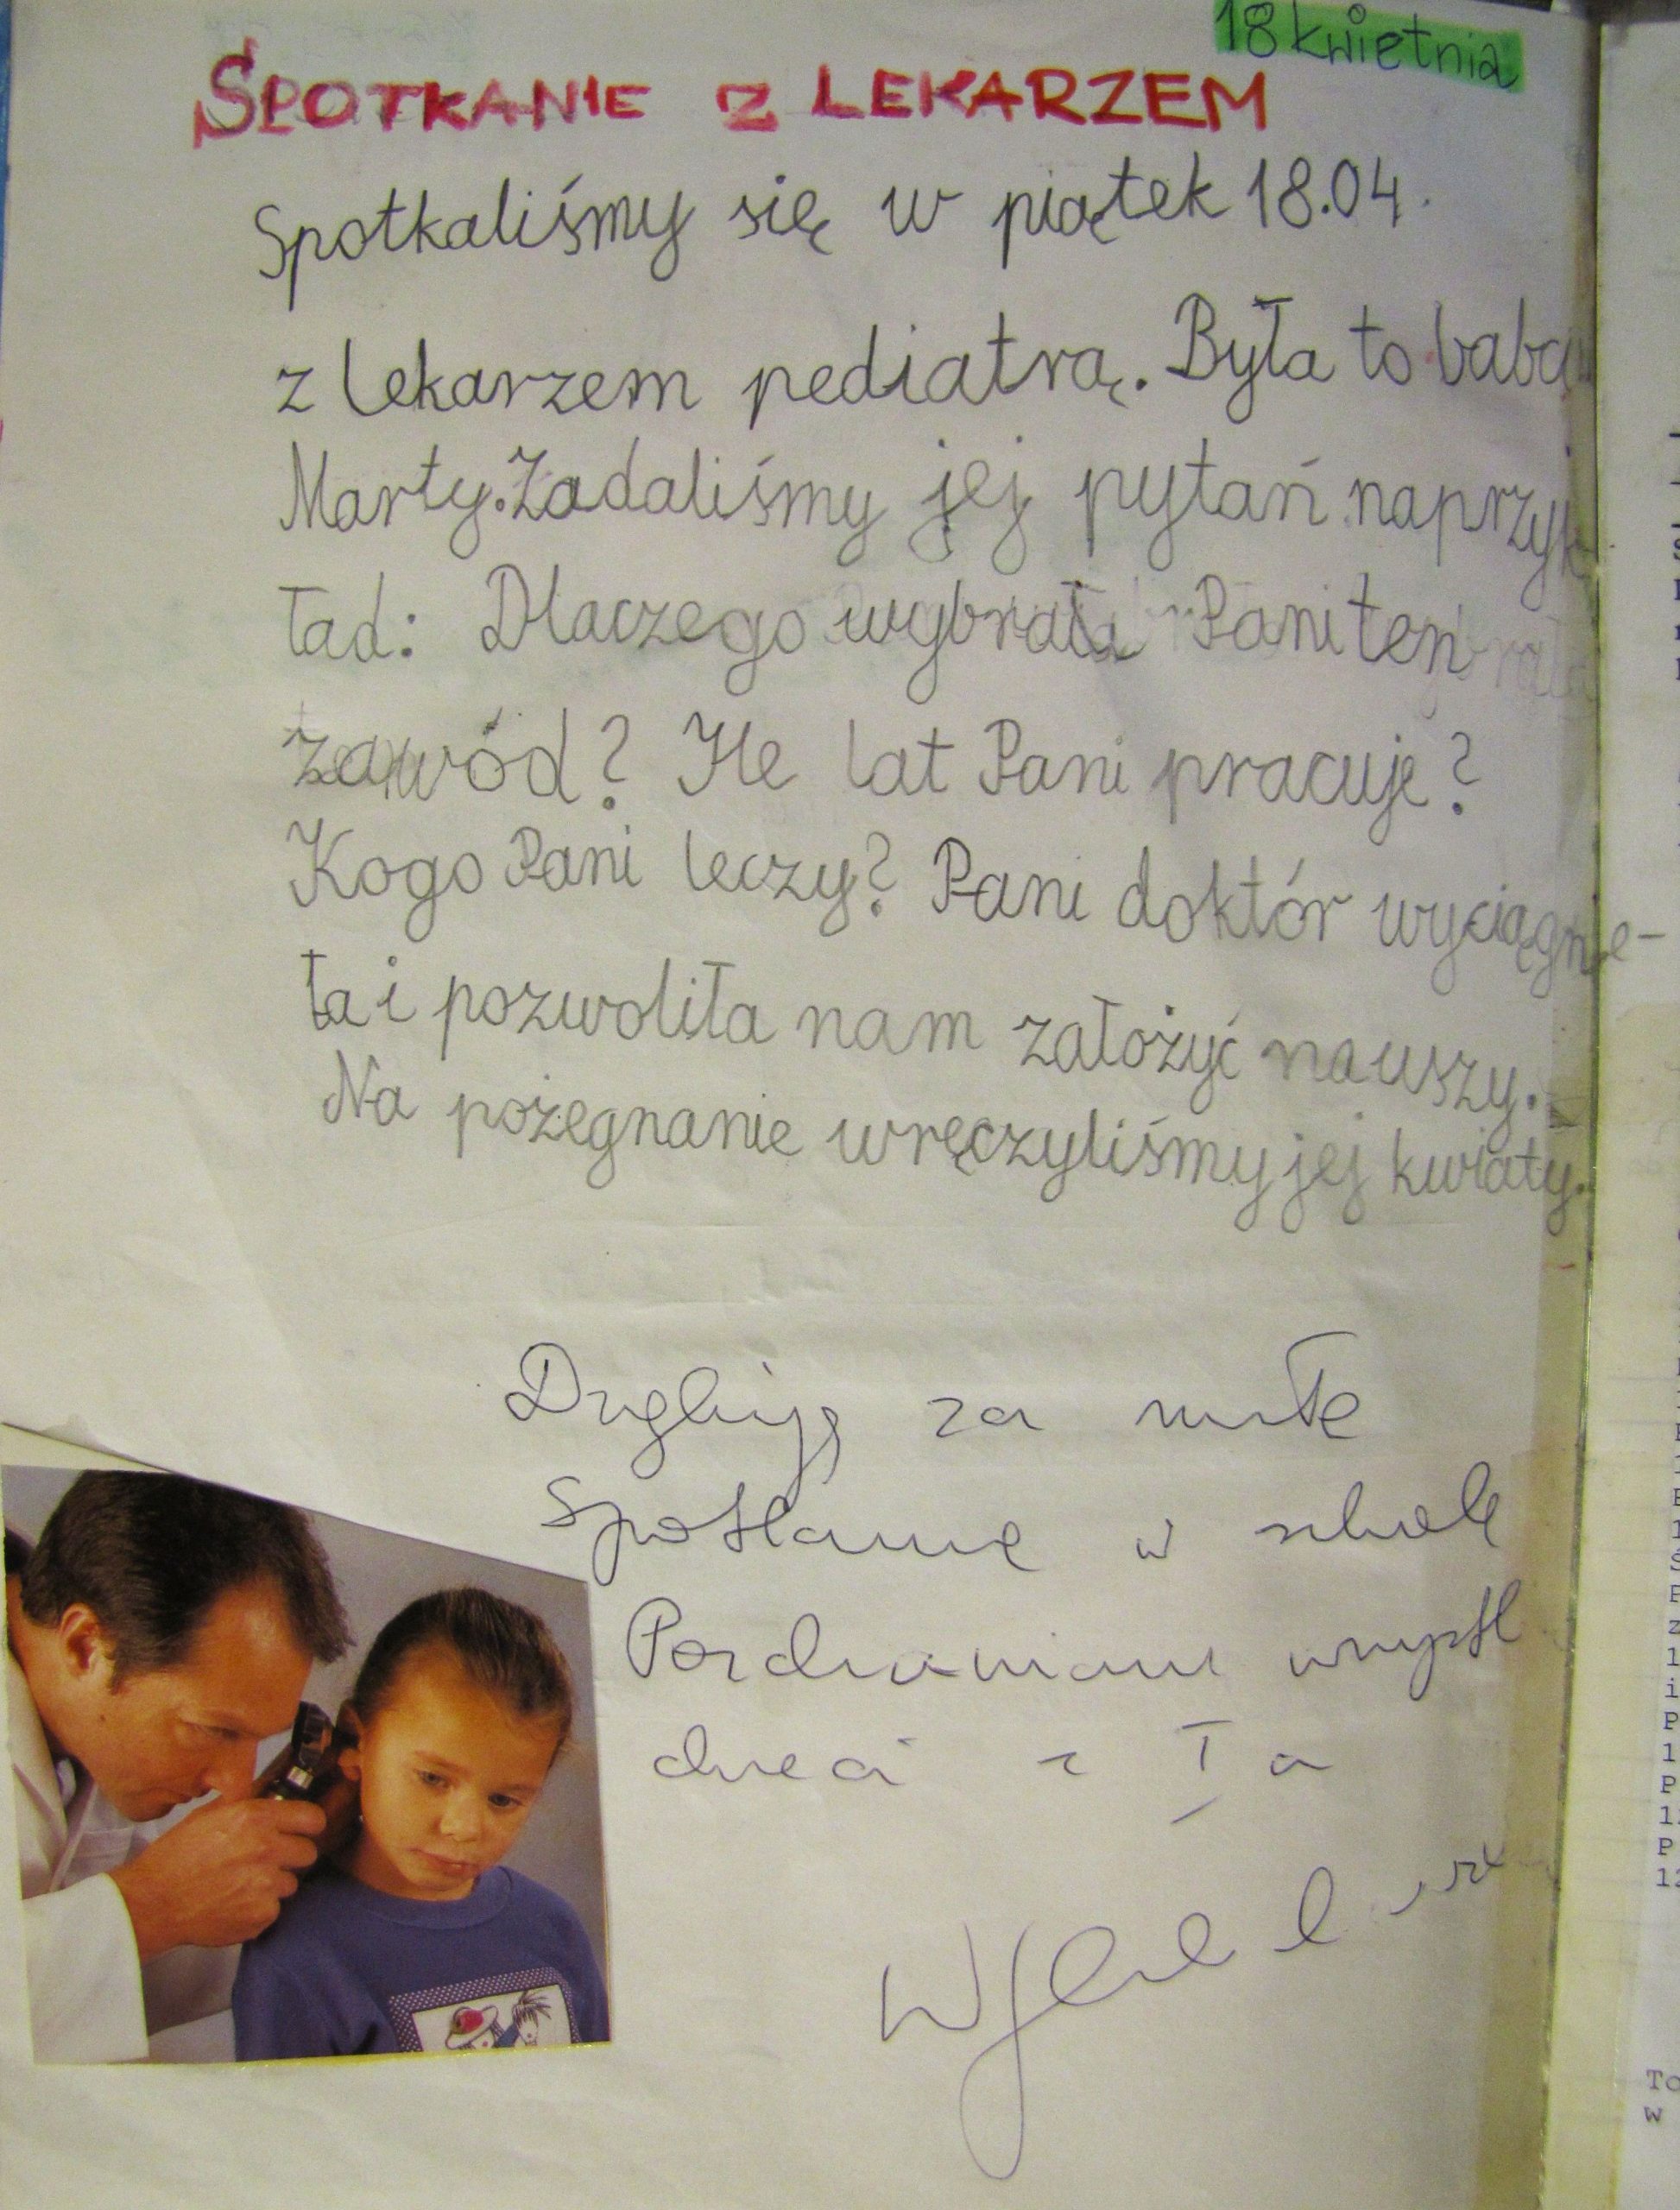 18 kwietnia
SPOTKANIE Z LEKARZEM
Spotkaliśmy się w piątek 18.04.
z lekarzem pediatrą. Była to baba
Marty. Zadaliśmy jej pytań naprzyk
ład: Dlaczego wybrała Pani ten
zawód? Ile lat Pani pracuje?
Kogo Pani leczy? Pani doktór wyciągnie-
ła i pozwoliła nam założyć na uszy.
Na pożegnanie wręczyliśmy jej kwiaty.
Dziękuję za miłe
spotkanie w szkole
Pozdrawiam wszystk
dzieci z I a